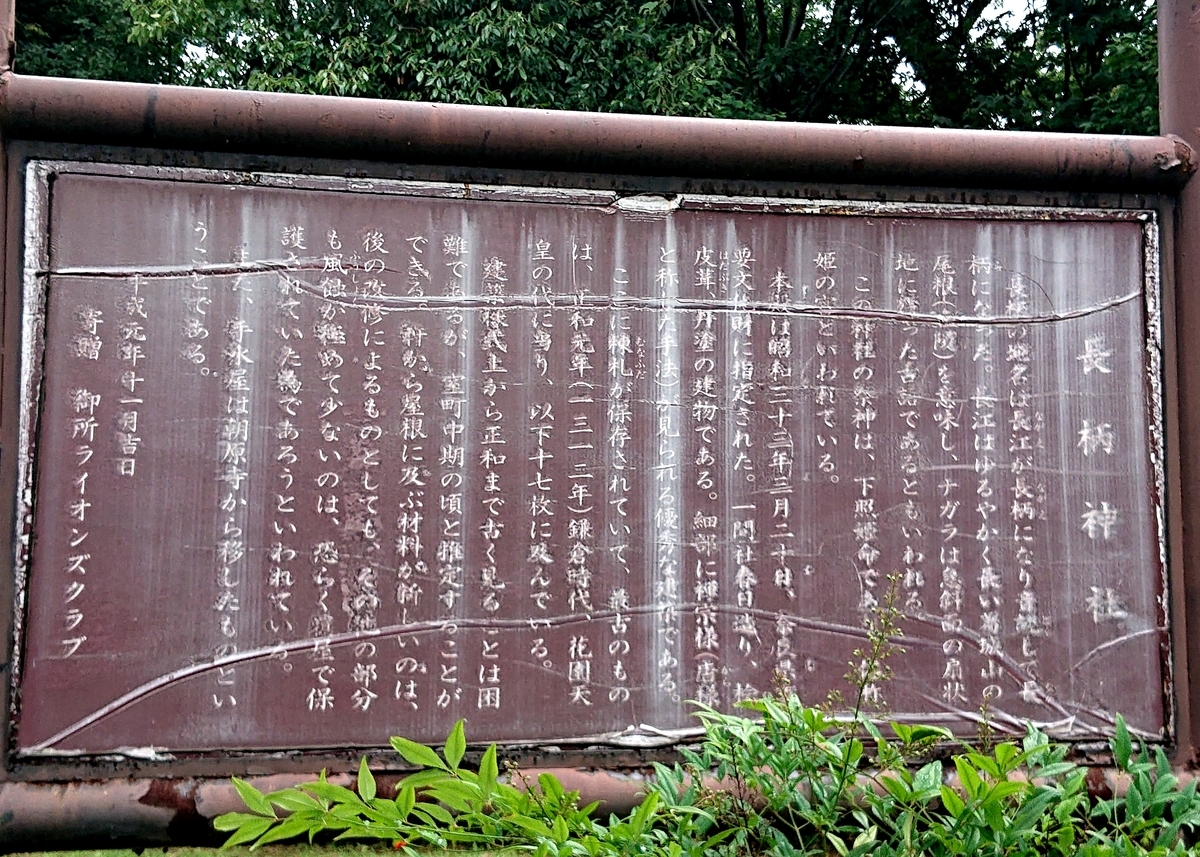 長柄神社
長柄の地名は長江が長柄になり音読して長
柄になった。長江はゆるやかく長い葛城山の
尾根(丘陵)を意味し、ナガラは急斜面の扇状
地に
った古語であるともいわれる。
この神社の祭神は、下照姫命で
姫の宮といわれている。
本殿は昭和三十三年三月二十日、奈良県
要文化財に指定された。一間社春日造り、桧
皮葺、丹塗の建物である。細部に禅宗様(唐様
と称した手法)が見られる優秀な建作である。
ここに棟札が保存されていて、最古のもの
は、正和元年(一三一二年)鎌倉時代、花園天
皇の代に当り、以下十七枚に及んでいる。
建築様式上から正和まで古く見ることは困
難であるが、室町中期の頃と推定することが
できる。軒から屋根に及ぶ材料が新しいのは、
後の改修によるものとしても、その他の部分
も風蝕が極めて少ないのは、恐らく覆屋で保
護されていた為であろうといわれている。
また、手水屋は朝原寺から移したものとい
うことである。
平成元年十一月吉日
寄贈 御所ライオンズクラブ